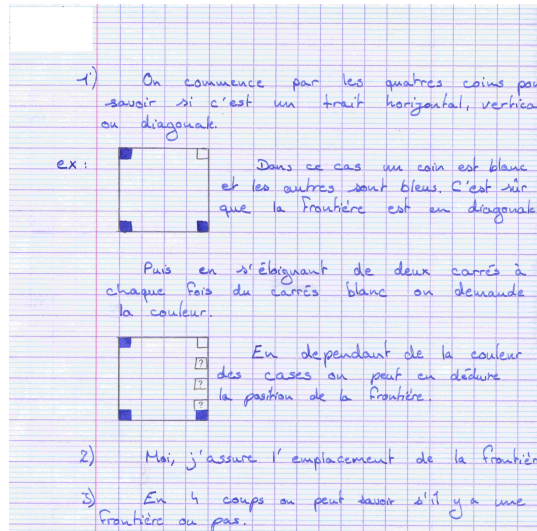 1) On commence par les quatres coins pou
savoir si c'est un trait horizontal, vertica
ou diagonale.
ex : Dans ce cas un coin est blanc
et les autres sont bleus. C'est sûr
que la frontière est en diagonale
Puis en s'éloignant de deux carrés à
chaque fois du carrés blanc on demande
la couleur.
? En dependant de la couleur
? des cases on peut en déduire
? la position de la frontière.
2) Moi, j'assure l'emplacement de la frontièr
3) En 4 coups on peut savoir s'il y a une
frontière ou pas.